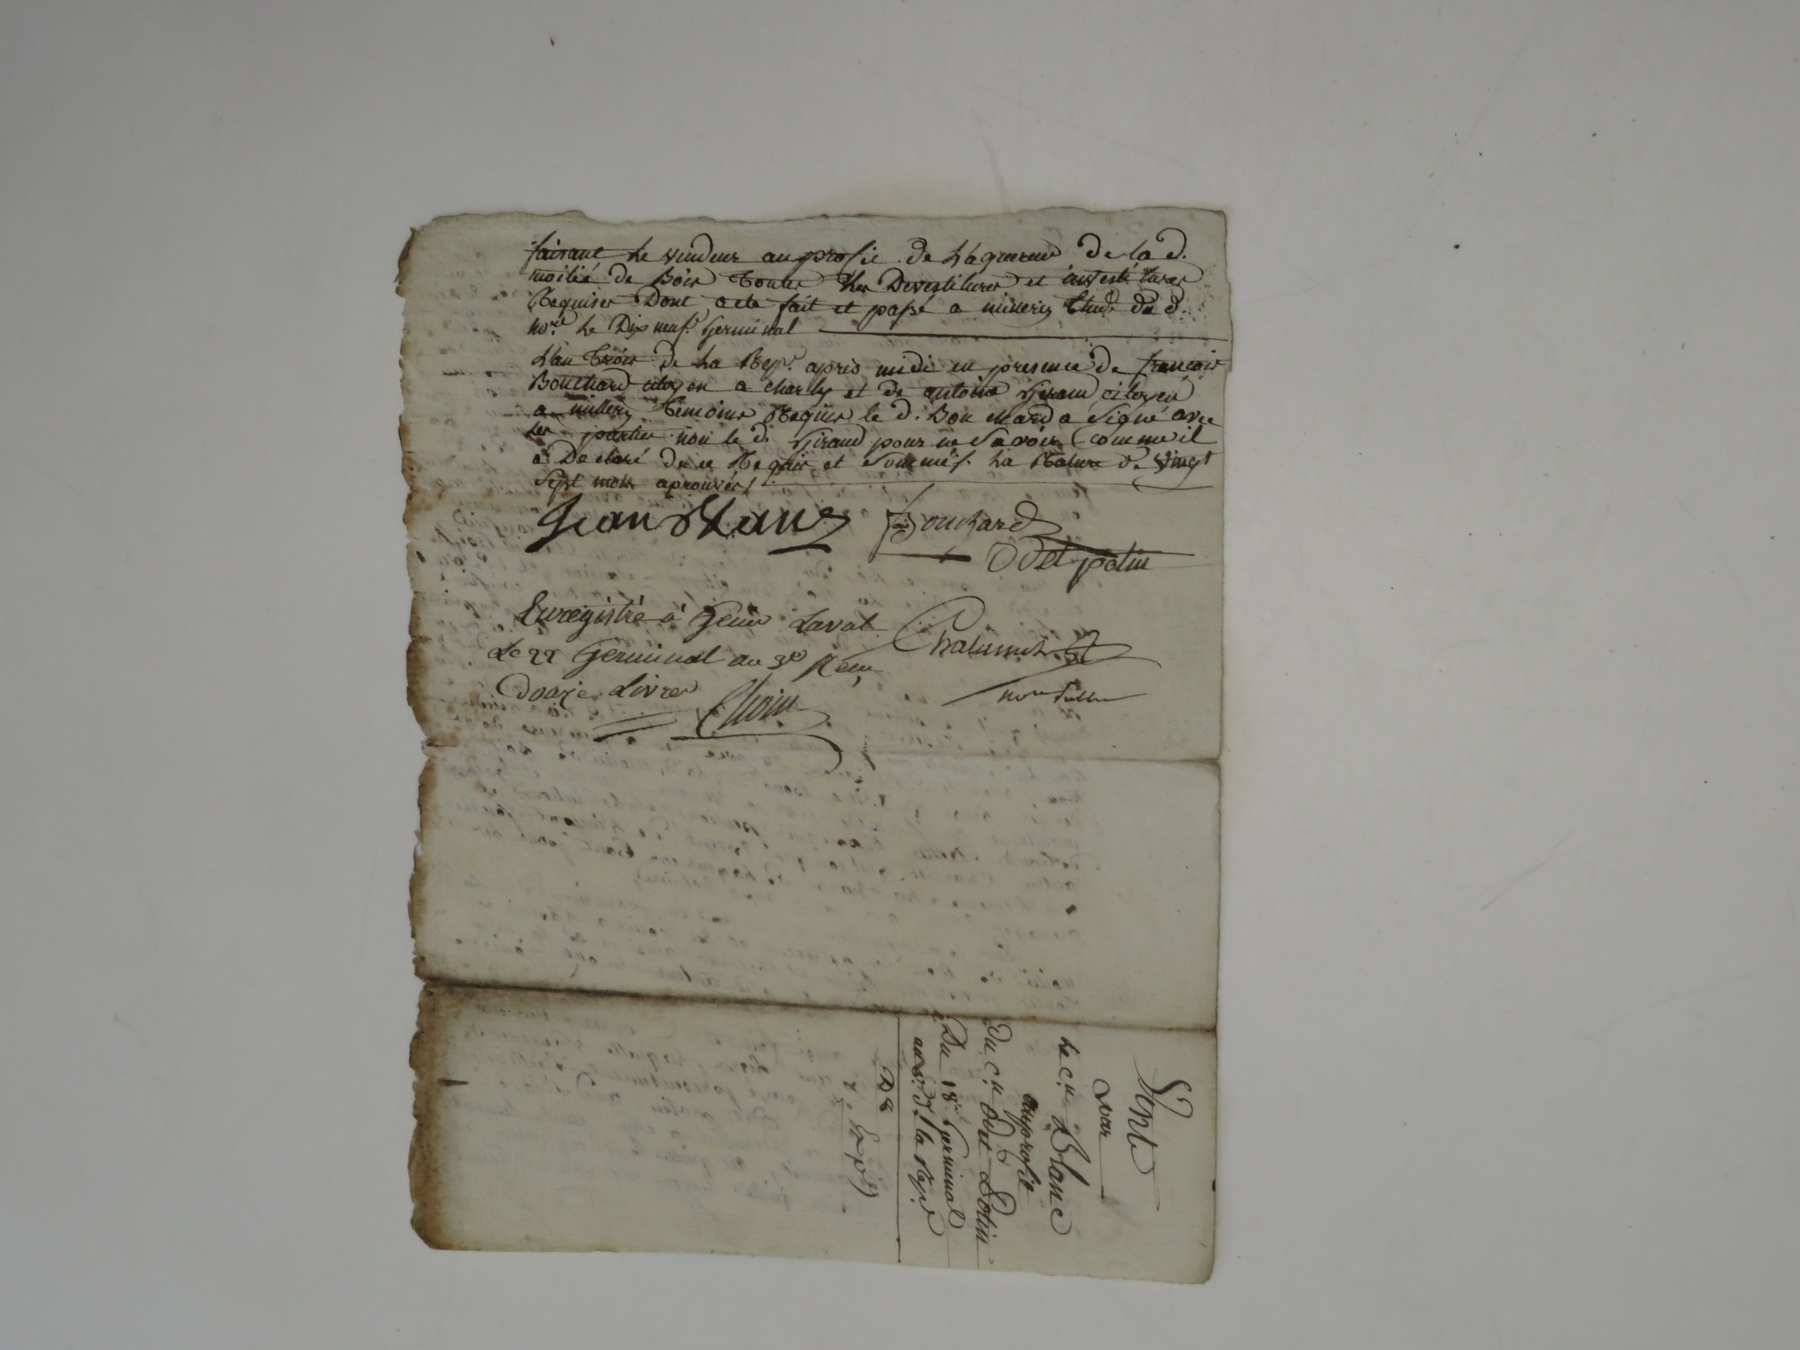 faisant Le vendeur au profit de L'aquereur de la d.
moitié de Bois Toutes Les Devestitures et investitures
Requises Dont acte fait et passé a millery Etude du d.
no.re Le Dix neuf Germinal
L'an Trois de La Rep.e apres midi en presence de francois
Bouchard citoyen a charly et de antoine Giraud citoyen
a millery Temoins Requis le d. Bouchard a Signé avec
Les parties non le d. Giraud pour ne Savoir comme il
a Declaré de ce Requis et Sommé /. La Rature de vingt
Sept mots aprouvés /
Jean Blanc Bouchard
Odet potin
Enregistré à Genis Laval
Le 22 Germinal an 3e Reçu
Douze Livres
no.re
Vente
par
Le c.en Blanc
au profit
Du c.en Odet Potin
Du 18e Germinal
an 3 d. la Rep.e